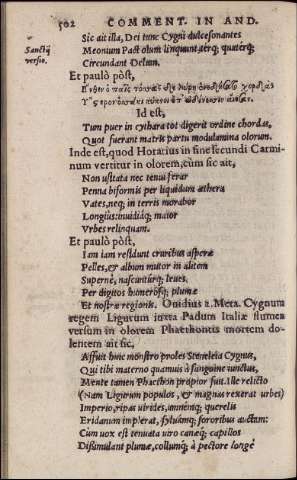 502 COMMENT. IN AND.
Sic ait illa, Dei tunc Cygni dulcesonantes
Sanctij Meonium Pactolum linquunt aërq; quatérq;
versio. Circundant Delum.
Et paulò pòst,
Id est,
Tum puer in cythara tot digerit ordine chordas,
Quot fuerant matris partu modulamina olorum.
Inde est, quod Horatius in fine secundi Carmi-
num vertitur in olorem, cùm sic ait,
Non usitata nec tenui ferar
Penna biformis per liquidum æthera
Vates, neq; in terris morabor
Longiùs: inuidiáq; maior
Vrbes relinquam.
Et paulò pòst,
Iam iam residunt cruribus asperæ
Pelles, & album mutor in alitem
Supernè, nascuntúrq; leues
Per digitos humerósq; plumæ
Et nostræ regionis. Ouidius 2. Meta. Cygnum
regem Ligurum iuxta Padum Italiæ flumen
versum in olorem Phaethontis mortem do-
lentem ait sic,
Affuit huic monstro proles Steneleia Cygnus,
Qui tibi materno quamuis à sanguine iunctus,
Mente tamen Phaethon propior fuit. Ille relicto
(Nam Ligurum populos, & magnas rexerat urbes)
Imperio, ripas uirides, amnémq; querelis
Eridanum impleràt, syluámq; sororibus auctam:
Cùm uox est tenuata uiro canæq; capillos
Dissimulant plumæ, collumq; à pectore longè